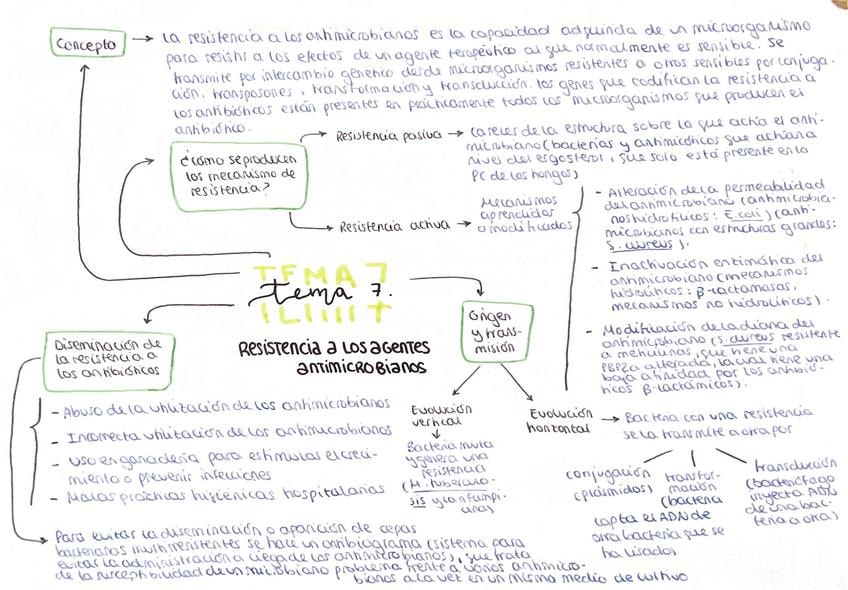 Concepto
La resistencia a los antimicrobianos es la capacidad adquirida de un microorganismo
para resistir a los efectos de un agente terapéutico al que normalmente es sensible. Se
transmite por intercambio genético desde microorganismos resistentes a otros sensibles por conjuga-
ción, transposones, transformación y transducción. Los genes que codifican la resistencia a
los antibióticos están presentes en prácticamente todos los microorganismos que producen el
antibiótico.
¿Cómo se producen
los mecanismo de
resistencia?
Resistencia pasiva
Carecer de la estructura sobre la que actúa el anti-
microbiano (bacterias y antimicóticos que actúan a
nivel del ergosterol, que solo está presente en la
PC de los hongos)
Resistencia activa
Mecanismos
aprendidos
o modificados
- Alteración de la permeabilidad
del antimicrobiano (antimicrobia-
nos hidrofílicos: E.coli) (anti-
microbianos con estructuras grandes:
S. aureus).
- Inactivación enzimática del
antimicrobiano (mecanismos
hidrolíticos: β-lactamasas,
mecanismos no hidrolíticos).
- Modificación de la diana del
antimicrobiano (S. aureus resistente
a meticilina, que tiene una
PBP2a alterada, la cual tiene una
baja afinidad por los antibió-
ticos β-lactámicos).
TEMA 7
tema 7.
Resistencia a los agentes
antimicrobianos
Origen
y trans-
misión
Evolución
vertical
Bacteria muta
y genera una
resistencia
(M. tuberculo-
sis y rifampi-
cina)
Evolución
horizontal
Bacteria con una resistencia
se la transmite a otra por
conjugación
(plásmidos)
transfor-
mación
(bacteria
capta el ADN de
otra bacteria que se
ha lisado)
transducción
(bacteriófago
inyecta ADN
de una bac-
teria a otra)
Diseminación de
la resistencia a
los antibióticos
- Abuso de la utilización de los antimicrobianos
- Incorrecta utilización de los antimicrobianos
- Uso en ganadería para estimular el creci-
miento o prevenir infecciones
- Malas prácticas higiénicas hospitalarias
Para evitar la diseminación o aparición de cepas
bacterianas multirresistentes se hace un antibiograma (sistema para
evitar la administración a ciegas de los antimicrobianos), que trata
de la susceptibilidad de un microbiano problema frente a varios antimicro-
bianos a la vez en un mismo medio de cultivo